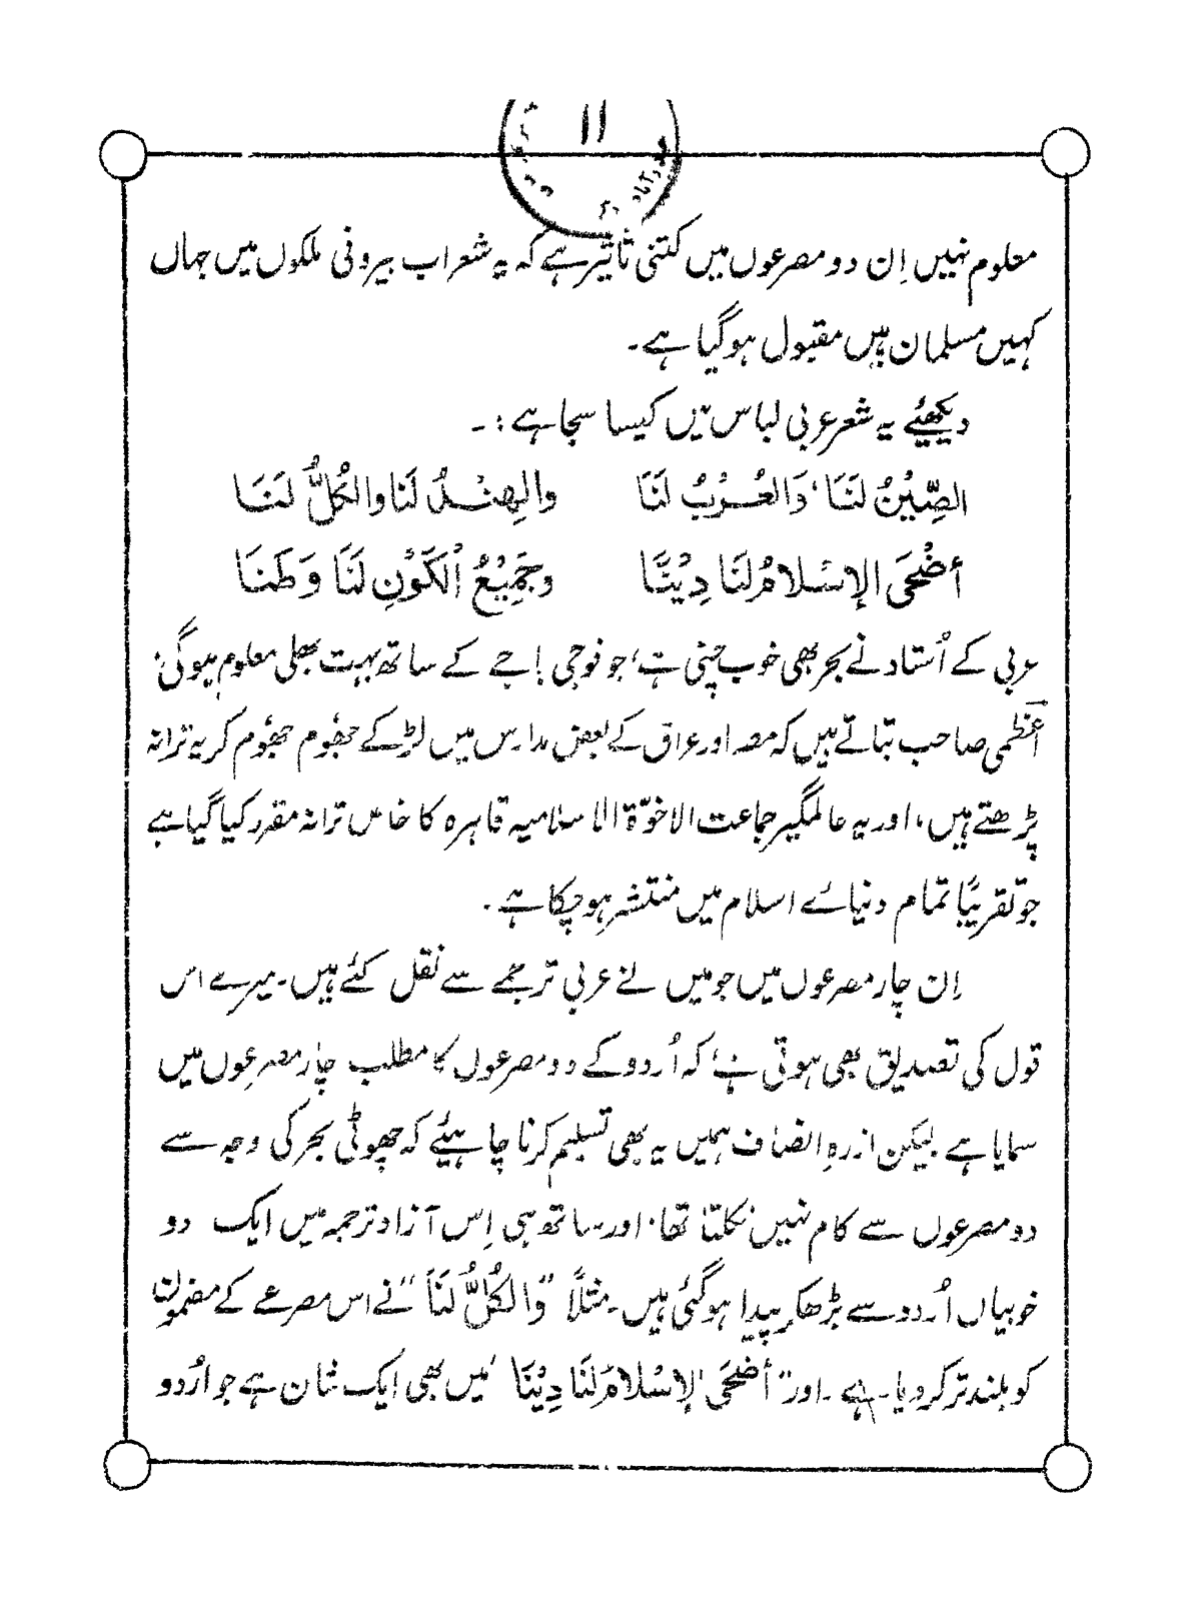 ۱۱
معلوم نہیں اِن دو مصرعوں میں کتنی تاثیر ہے کہ یہ شعر اب بیرونی ملکوں میں جہاں
کہیں مسلمان ہیں مقبول ہو گیا ہے۔
دیکھیئے یہ شعر عربی لباس میں کیسا سجا ہے :۔
الصِّیْنُ لَنَا، وَالعُرْبُ لَنَا والهِنْدُ لَنَا والکُلُّ لَنَا
أضْحَی الإسْلامُ لَنَا دِیْنًا وجَمِیْعُ الکَوْنِ لَنَا وَطَنَا
عربی کے اُستاد نے بحر بھی خوب چنی ہے، جو فوجی باجے کے ساتھ بہت بھلی معلوم ہوگی:
اعظمی صاحب بتاتے ہیں کہ مصر اور عراق کے بعض مدارس میں لڑکے جھوم جھوم کر یہ ترانہ
پڑھتے ہیں، اور یہ عالمگیر جماعت الاخوّۃ الاسلامیہ قاہرہ کا خاص ترانہ مقرر کیا گیا ہے
جو تقریبًا تمام دنیائے اسلام میں منتشر ہو چکا ہے۔
اِن چار مصرعوں میں جو میں نے عربی ترجمے سے نقل کئے ہیں۔ میرے اس
قول کی تصدیق بھی ہوتی ہے، کہ اُردو کے دو مصرعوں کا مطلب چار مصرعوں میں
سمایا ہے لیکن از رہِ انصاف ہمیں یہ بھی تسلیم کرنا چاہیئے کہ چھوٹی بحر کی وجہ سے
دو مصرعوں سے کام نہیں نکلتا تھا۔ اور ساتھ ہی اِس آزاد ترجمہ میں ایک دو
خوبیاں اُردو سے بڑھکر پیدا ہو گئی ہیں۔ مثلًا "وَالکُلُّ لَنَا" نے اس مصرعے کے مضمون
کو بلند تر کر دیا ہے۔ اور "أضْحَی الإسْلامُ لَنَا دِیْنَا" میں بھی ایک شان ہے جو اُردو